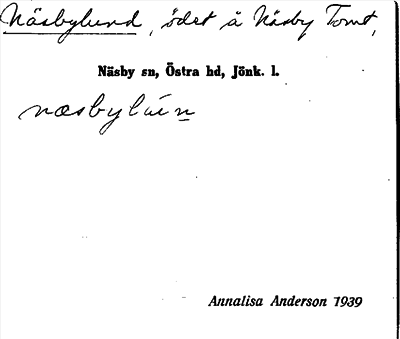 Näsbylund, ödet å Näsby Tomt,
Näsby sn, Östra hd, Jönk. l.
næsbylún
Annalisa Anderson 1939